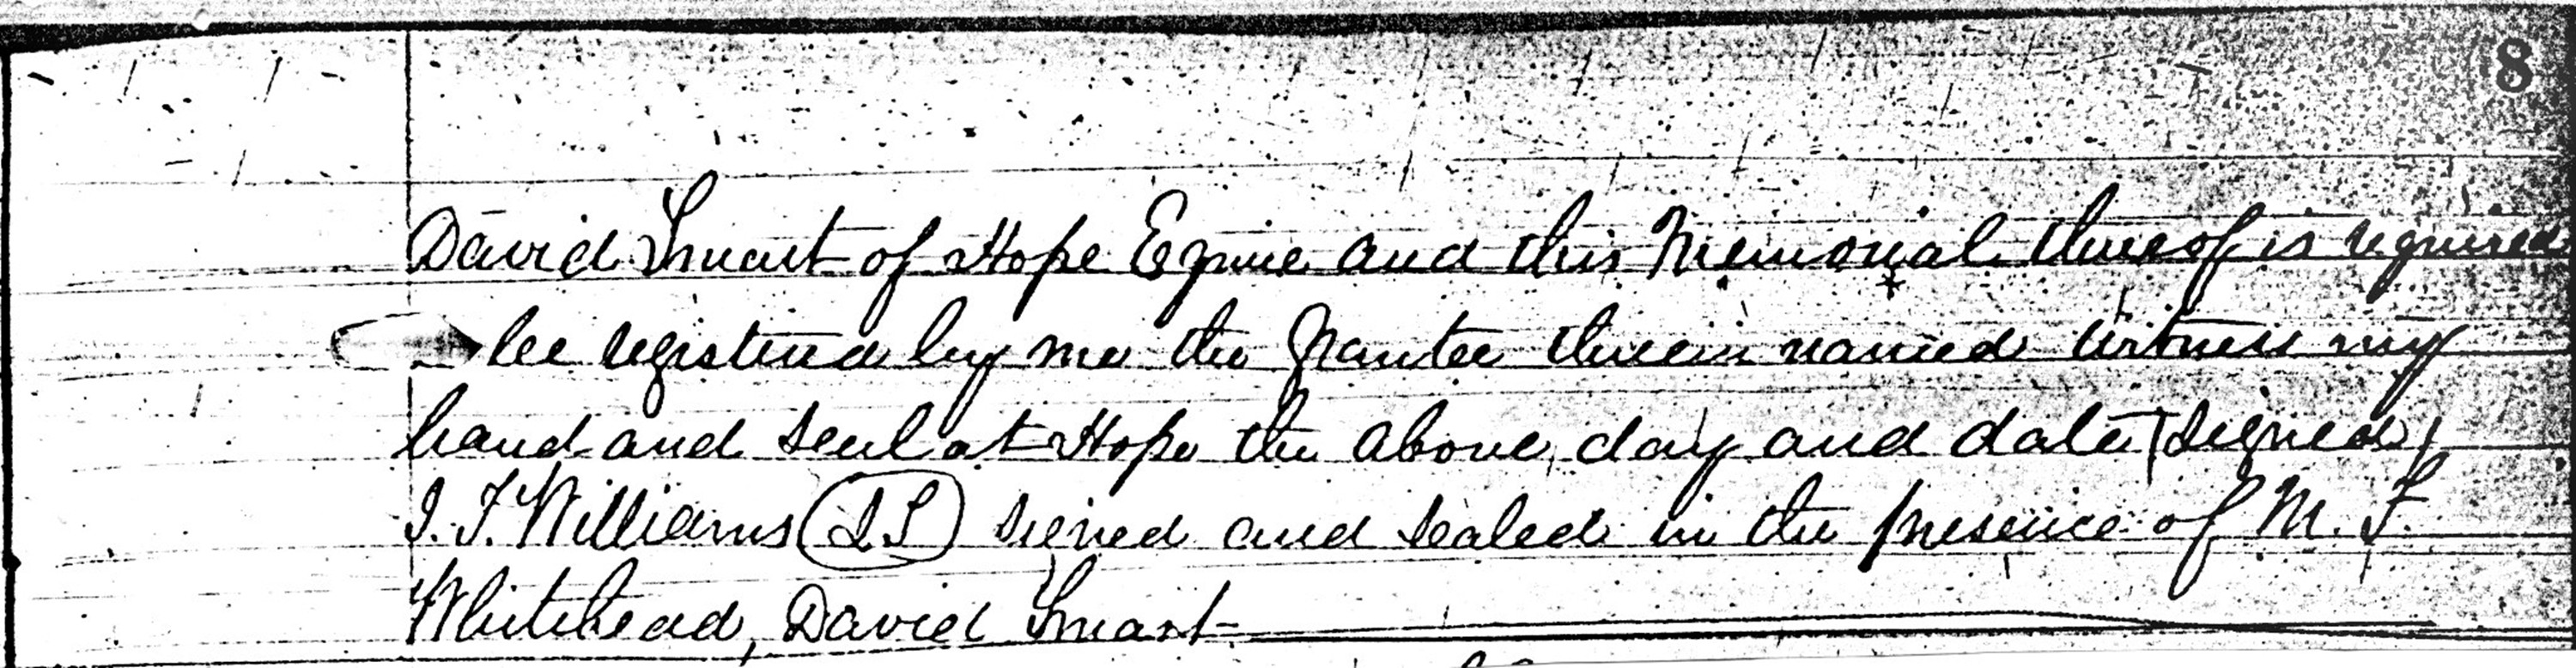 8
David Smart of Hope Esquire and this Memorial thereof is required
be registered by me the Grantee therein named witness my
hand and seal at Hope the above day and date (signed)
J. T. Williams (LS) signed and sealed in the presence of M. F.
Whitehead, David Smart